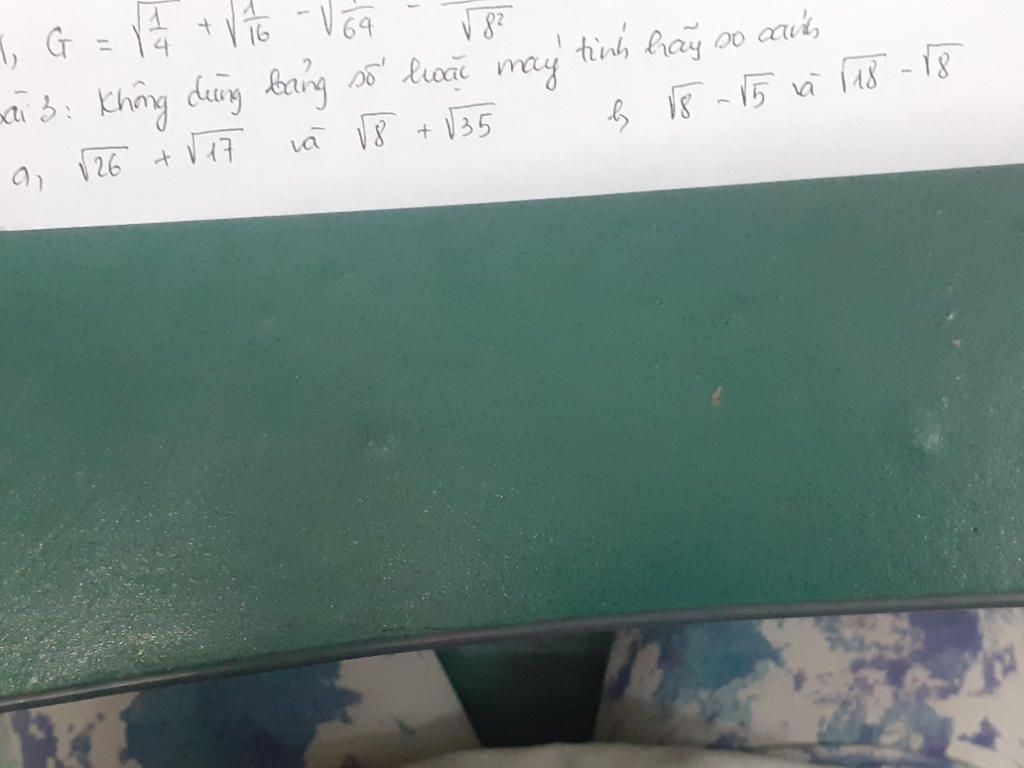 G = √1/4 + √1/16 - √1/64 - √8²
Bài 3: Không dùng bảng số hoặc máy tính hãy so sánh
a, √26 + √17 và √8 + √35 b, √8 - √5 và √18 - √8